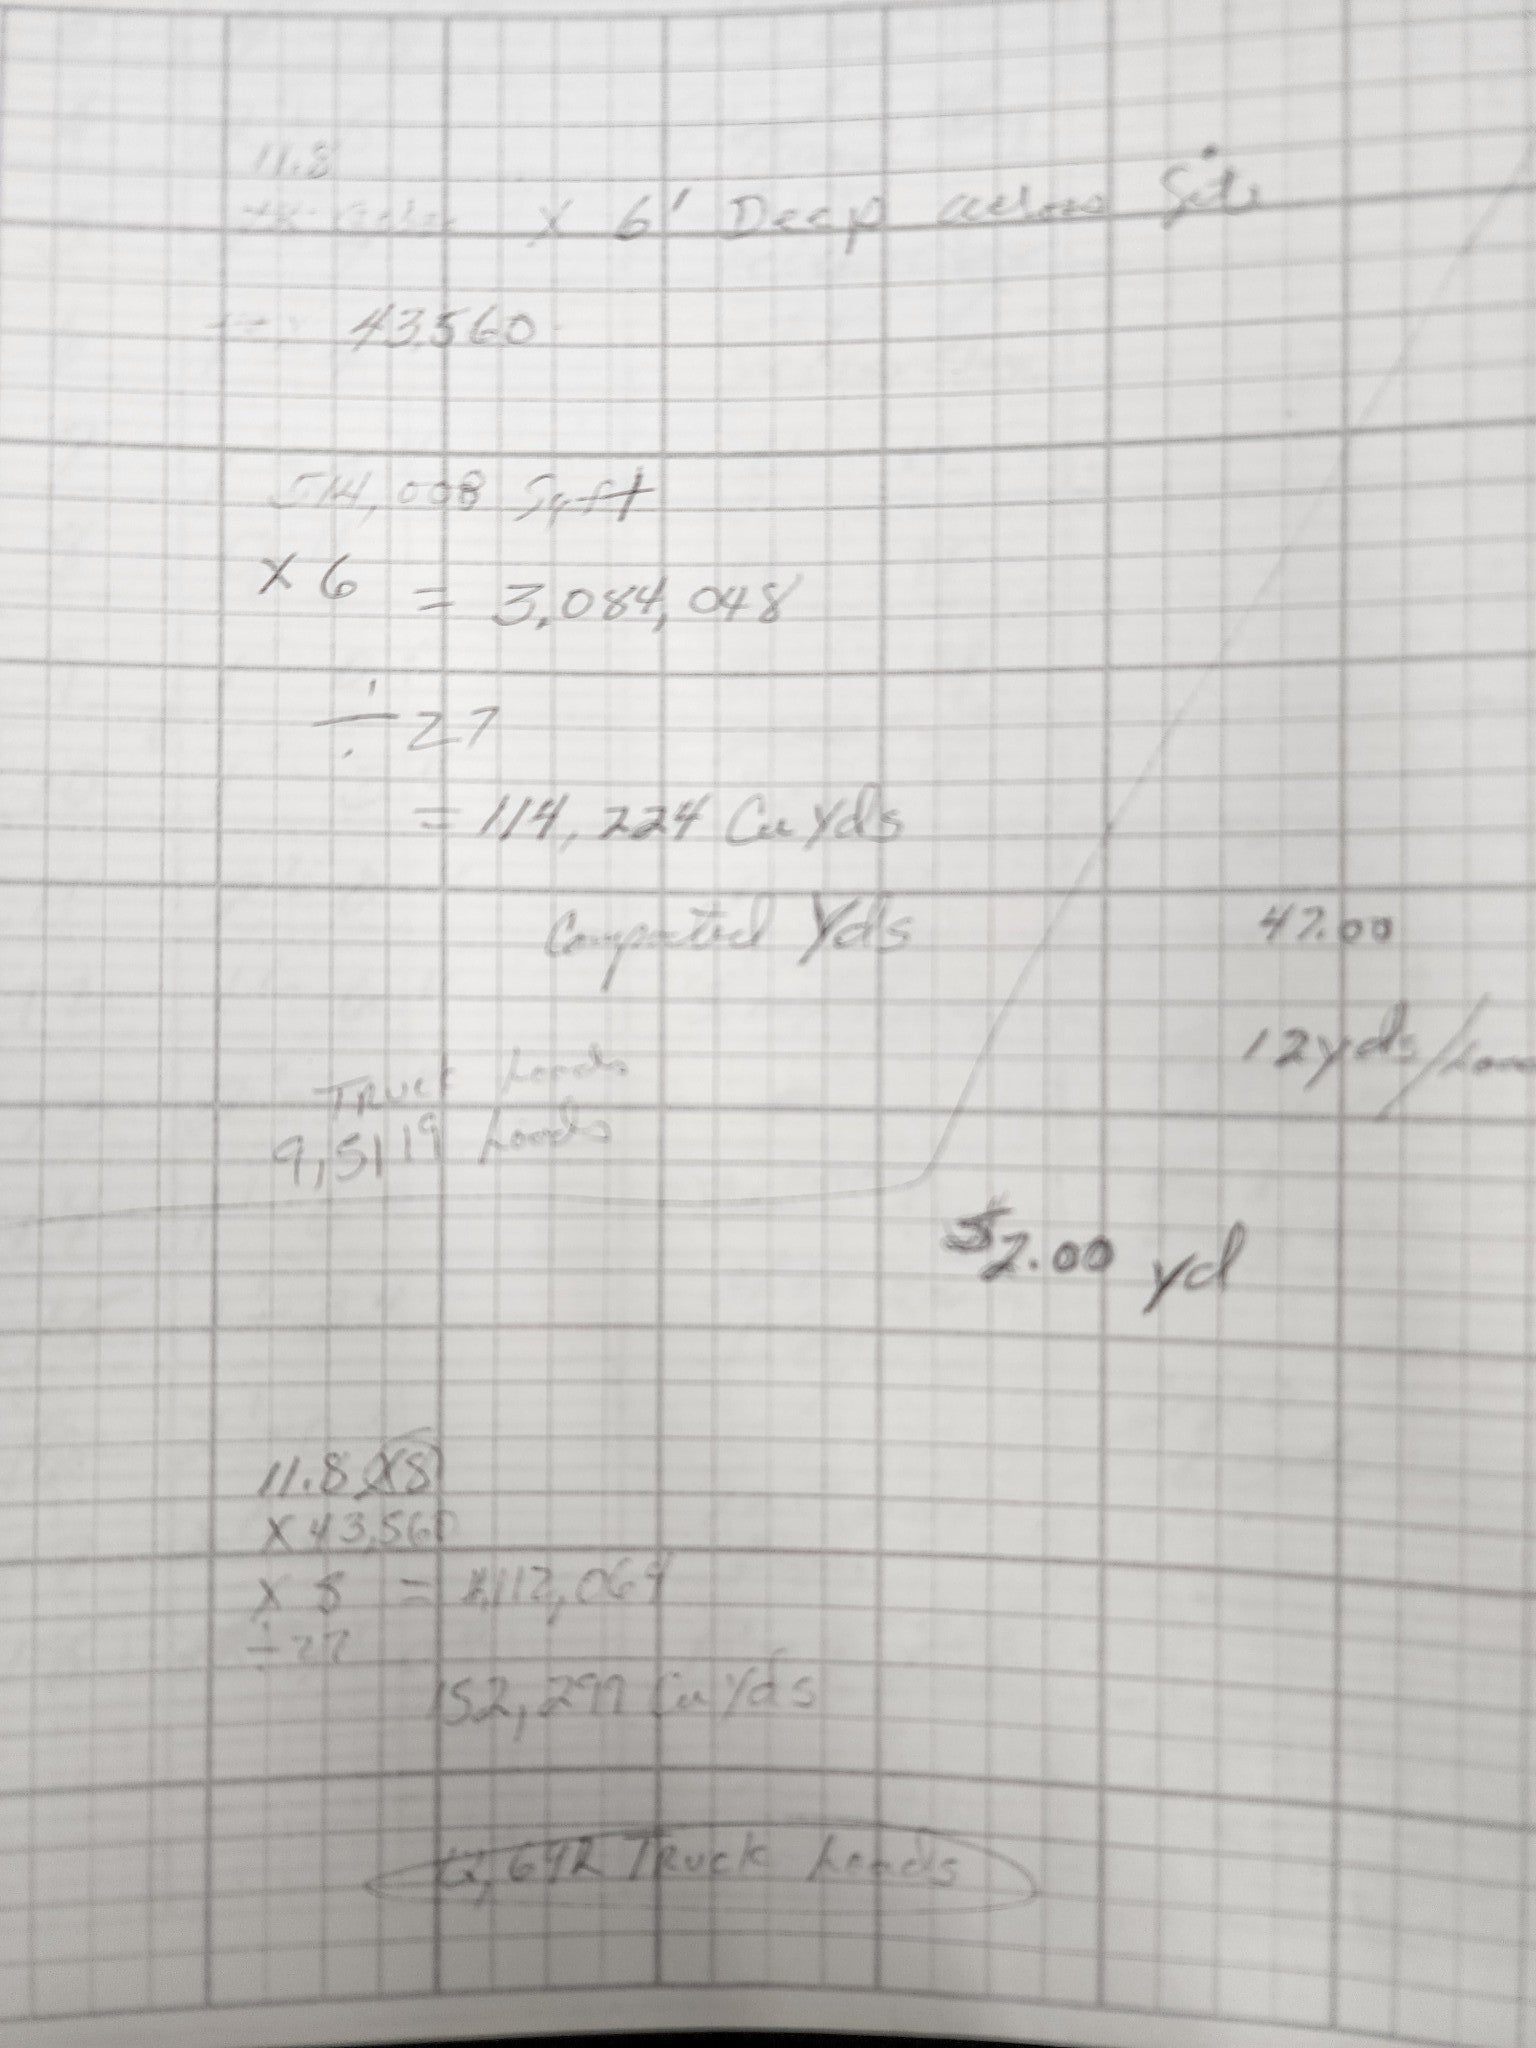 11.8
X 6' Deep across Site
43560
514,008 Sqft
X 6 = 3,084,048
÷ 27
= 114,224 Cu Yds
Compacted Yds
47.00
12 yds/
Truck Loads
9,5119 Loads
$2.00 yd
11.8 X8
X 43,560
X 8 = 4,112,064
÷ 27
152,297 Cu Yds
12,692 Truck Loads